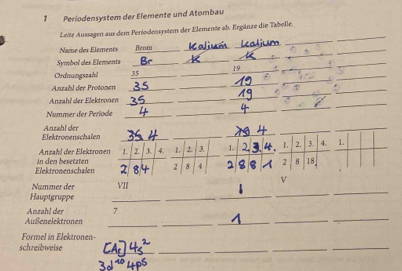 1 Periodensystem der Elemente und Atombau
Leite Aussagen aus dem Periodensystem der Elemente ab. Ergänze die Tabelle.
Name des Elements Brom Kalium Kalium
Symbol des Elements Br K K
Ordnungszahl 35 19
Anzahl der Protonen 35 19
Anzahl der Elektronen 35 19
Nummer der Periode 4 4
Anzahl der
Elektronenschalen 4 4
Anzahl der Elektronen 1. 2. 3. 4. 1. 2. 3. 1. 2. 3. 4. 1. 2. 3. 4. 1.
in den besetzten
Elektronenschalen 2 8 4 2 8 4 2 8 8 1 2 8 18
Nummer der VII 1 V
Hauptgruppe
Anzahl der 7
Außenelektronen 1
Formel in Elektronen-
schreibweise [Ar] 4s²
3d¹⁰ 4p5